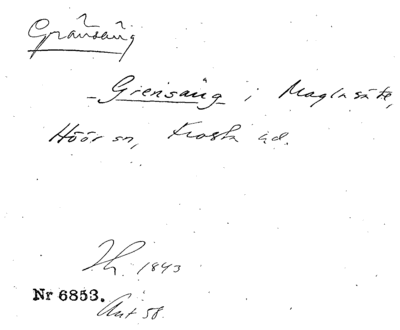 Gränsäng
- Griensäng i Maglasäte,
Höör sn, Frosta hd.
Jh. 1843
Nr 6853.
Ant 58